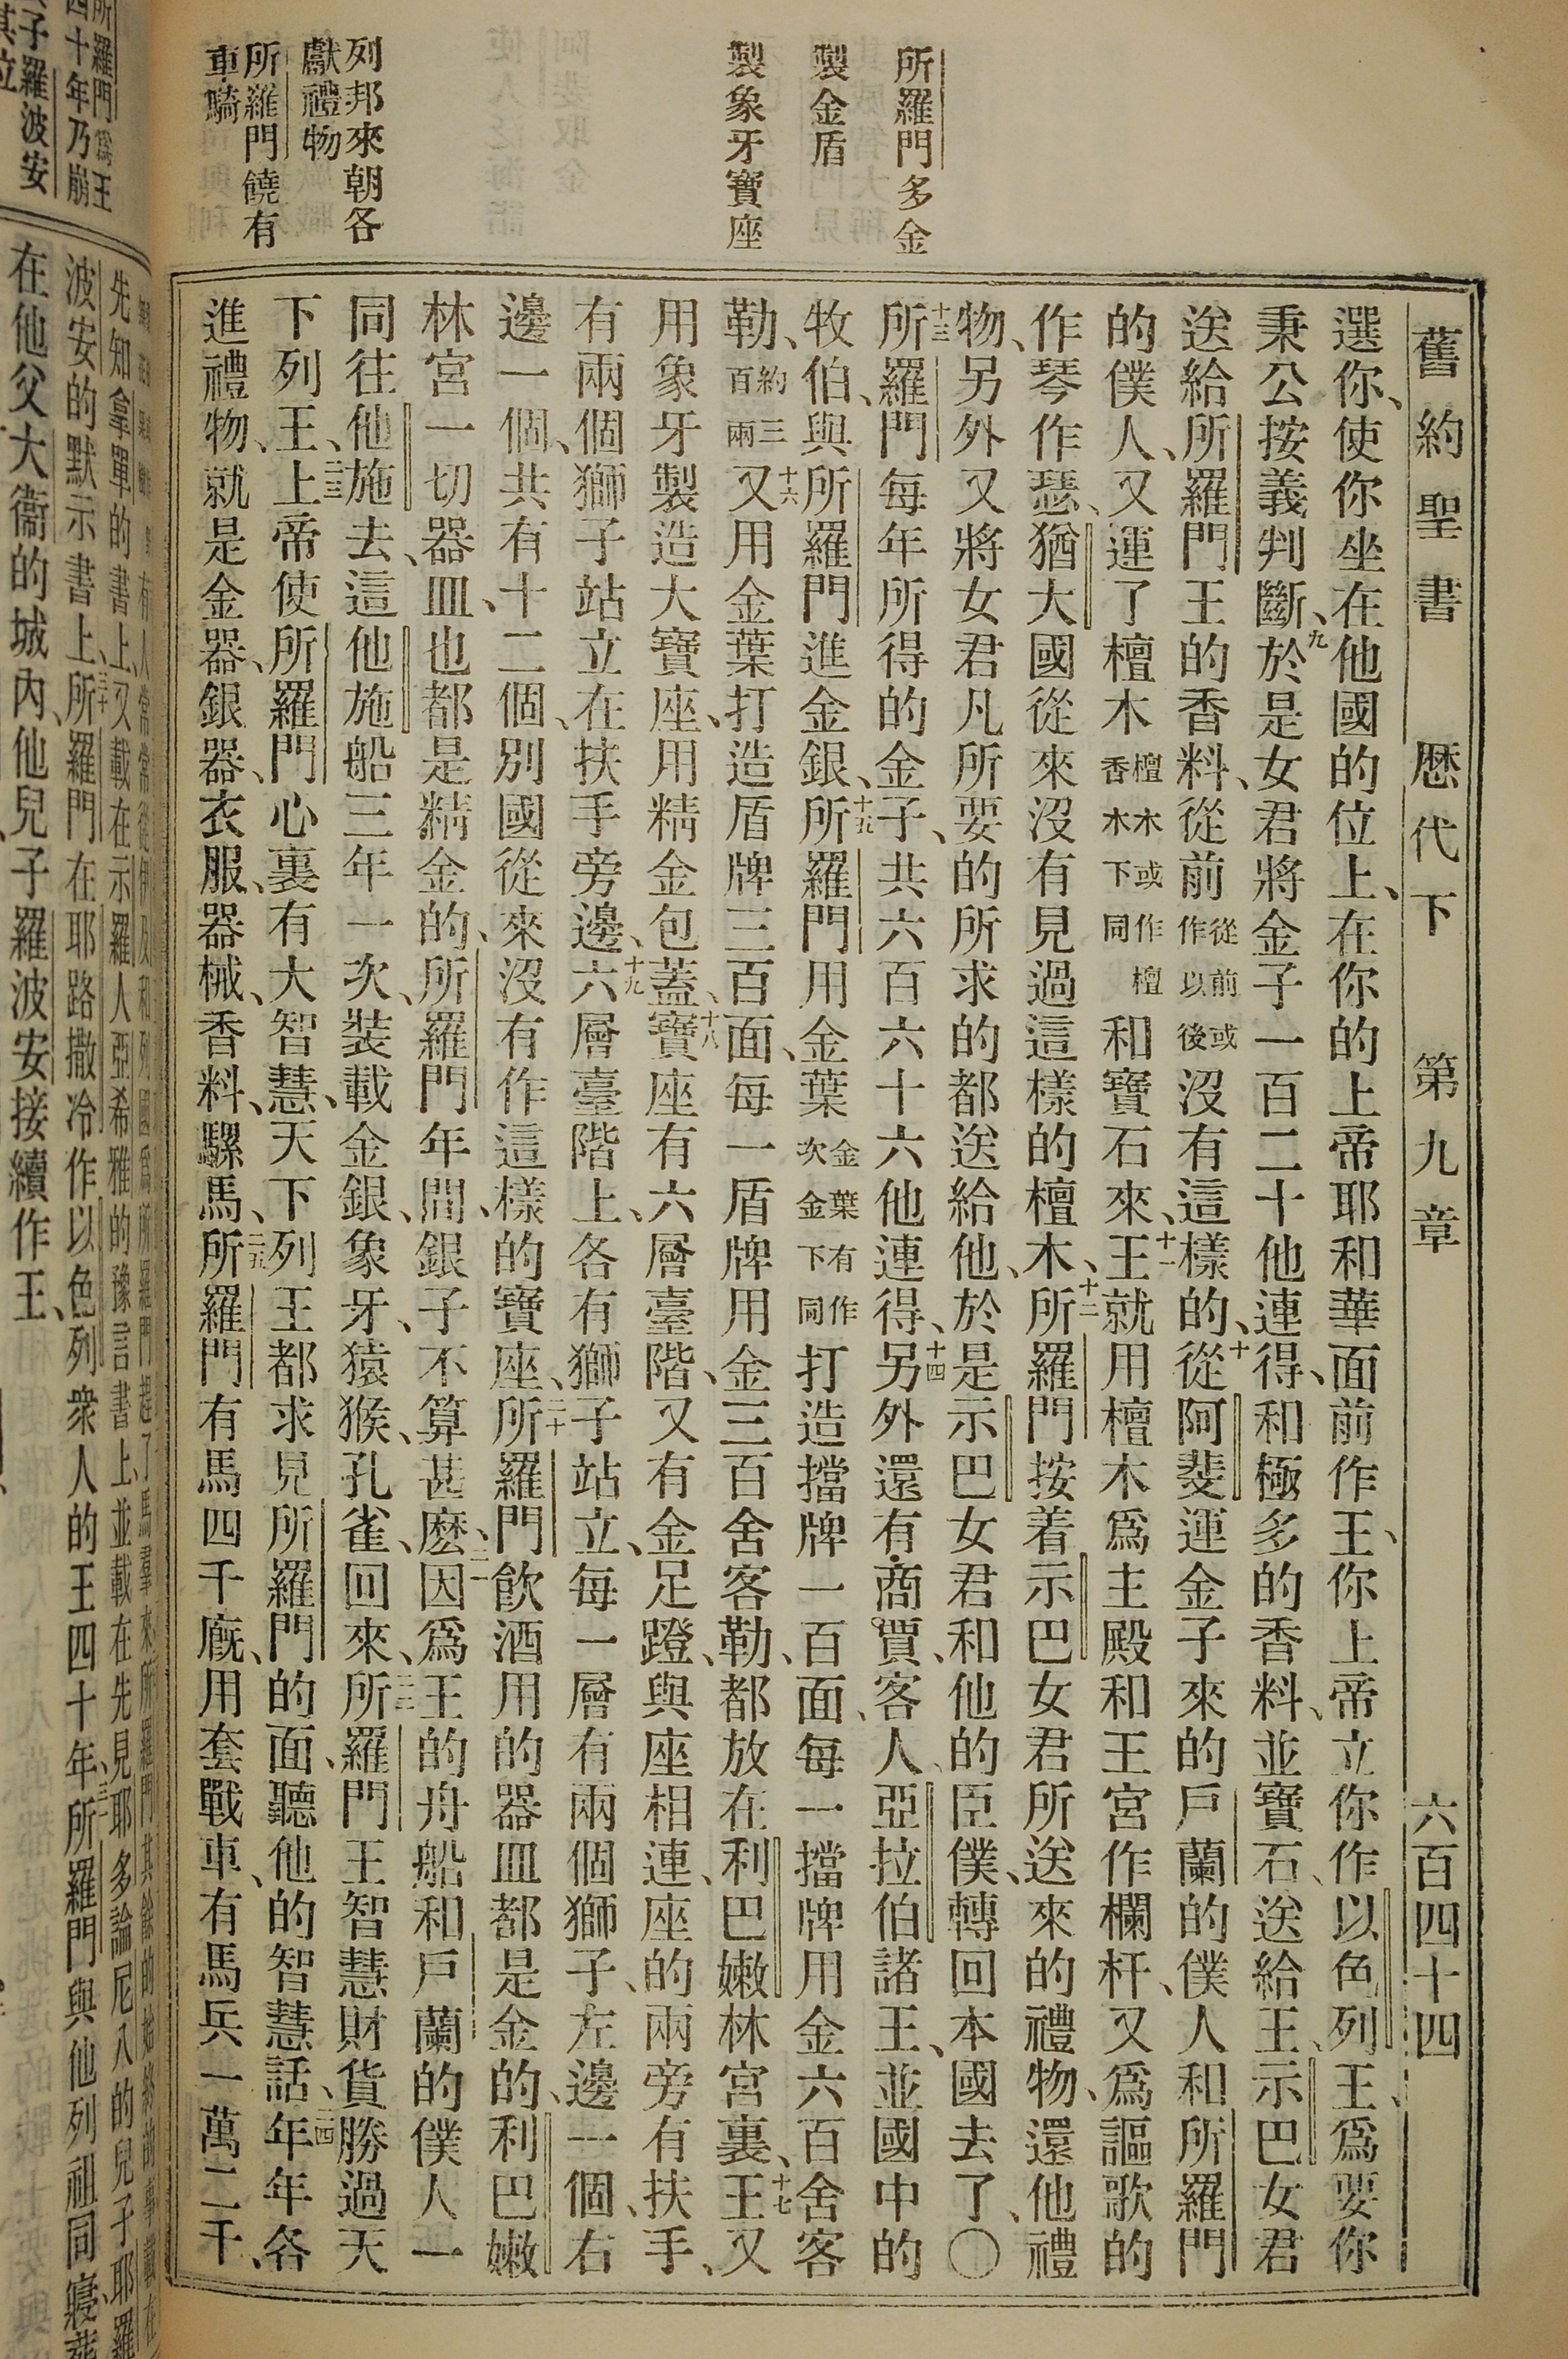 舊約聖書 歷代下 第九章 六百四十四
所羅門多金
製金盾
製象牙寶座
列邦來朝各
獻禮物
所羅門饒有
車騎
選你、使你坐在他國的位上、在你的上帝耶和華面前作王、你上帝立你作以色列王、爲要你
秉公按義判斷、九於是女君將金子一百二十他連得、和極多的香料、並寶石、送給王、示巴女君
送給所羅門王的香料、從前從前或作以後沒有這樣的、十從阿斐運金子來的戶蘭的僕人和所羅門
的僕人、又運了檀木檀木或作檀香木下同和寶石來、十一王就用檀木爲主殿和王宮作欄杆、又爲謳歌的
作琴作瑟、猶大國從來沒有見過這樣的檀木、十二所羅門按着示巴女君所送來的禮物、還他禮
物、另外又將女君凡所要的所求的都送給他、於是示巴女君和他的臣僕、轉回本國去了、〇
十三所羅門每年所得的金子、共六百六十六他連得、十四另外還有商賈、客人、亞拉伯諸王、並國中的
牧伯、與所羅門進金銀、十五所羅門用金葉金葉有作次金下同打造擋牌一百面、每一擋牌用金六百舍客
勒、約三百兩十六又用金葉打造盾牌三百面、每一盾牌用金三百舍客勒、都放在利巴嫩林宮裏、十七王又
用象牙製造大寶座、用精金包蓋、十八寶座有六層臺階、又有金足蹬、與座相連、座的兩旁有扶手、
有兩個獅子站立在扶手旁邊、十九六層臺階上、各有獅子站立、每一層有兩個獅子、左邊一個、右
邊一個、共有十二個、別國從來沒有作這樣的寶座、二十所羅門飲酒用的器皿都是金的、利巴嫩
林宮一切器皿、也都是精金的、所羅門年間、銀子不算甚麽、二一因爲王的舟船和戶蘭的僕人一
同往他施去、這他施船三年一次、裝載金銀、象牙、猿猴、孔雀、回來、二二所羅門王智慧財貨勝過天
下列王、二三上帝使所羅門心裏有大智慧、天下列王都求見所羅門的面、聽他的智慧話、二四年年各
進禮物、就是金器、銀器、衣服、器械、香料、騾馬、二五所羅門有馬四千廐、用套戰車、有馬兵一萬二千、
所羅門爲王
四十年乃崩
子羅波安
先知拿單的書上、又載在示羅人亞希雅的豫言書上、並載在先見耶多論尼八的兒子耶羅
波安的默示書上、三十所羅門在耶路撒冷作以色列衆人的王四十年、三一所羅門與他列祖同寢葬
在他父大衞的城內、他兒子羅波安接續作王、